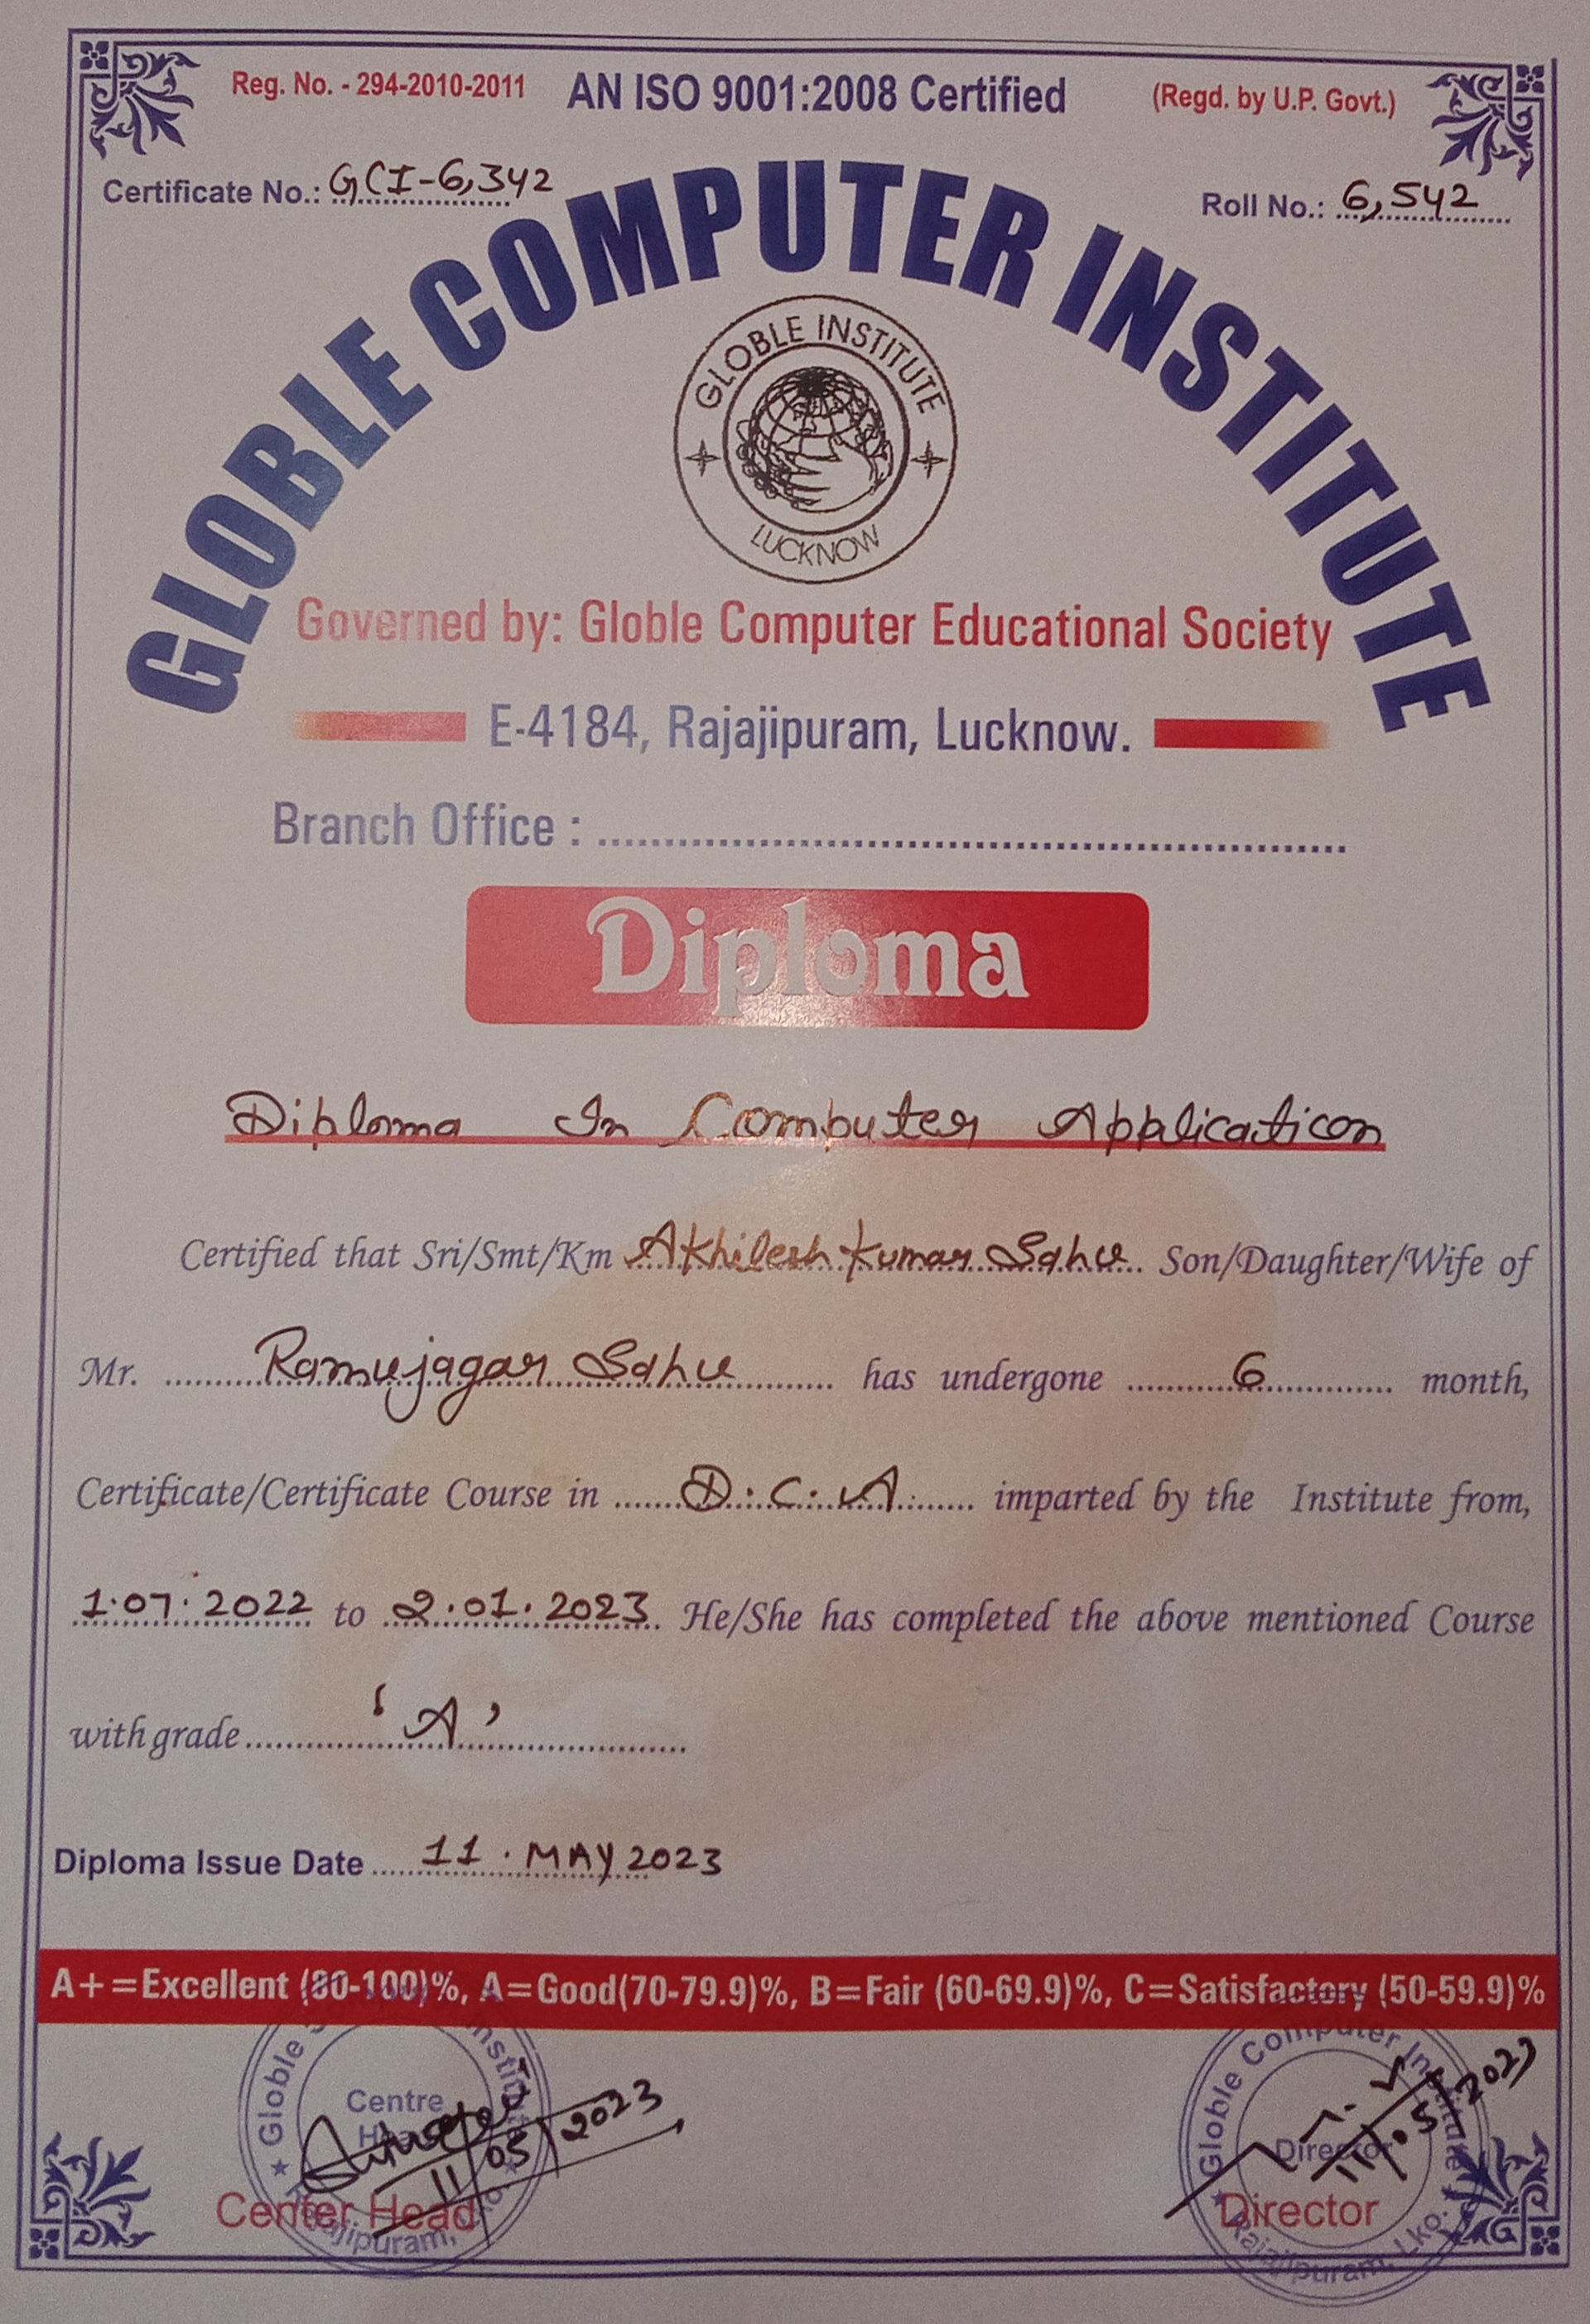 Reg. No. - 294-2010-2011 AN ISO 9001:2008 Certified (Regd. by U.P. Govt.)
Certificate No.: GCI-6,342 Roll No.: 6,542
GLOBLE COMPUTER INSTITUTE
GLOBLE INSTITUTE
LUCKNOW
Governed by: Globle Computer Educational Society
E-4184, Rajajipuram, Lucknow.
Branch Office : ........................................................
Diploma
Diploma In Computer Application
Certified that Sri/Smt/Km Akhilesh Kumar Sahu Son/Daughter/Wife of
Mr. Ramujagar Sahu has undergone 6 month,
Certificate/Certificate Course in D.C.A. imparted by the Institute from,
1.07.2022 to 2.01.2023 He/She has completed the above mentioned Course
with grade 'A'
Diploma Issue Date 11.MAY 2023
A+=Excellent (80-100)%, A=Good(70-79.9)%, B=Fair (60-69.9)%, C=Satisfactory (50-59.9)%
Globle Institute Centre Head Rajajipuram, Lko.
11/05/2023
Center Head
Globle Computer Institute Director Rajajipuram, Lko.
11/05/2023
Director